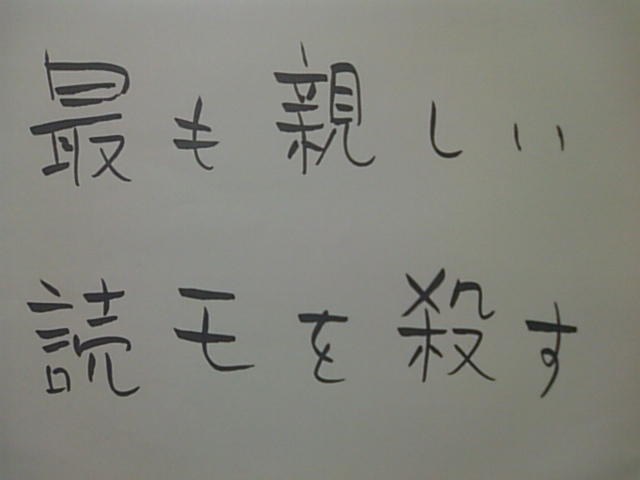 最も親しい
読モを殺す